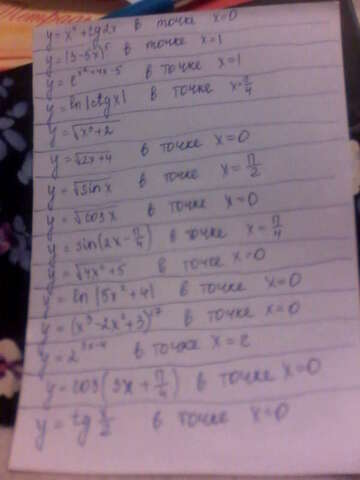 y = x² + tg2x в точке x=0
y = (3-5x)⁵ в точке x=1
y = e^(x²+4x-5) в точке x=1
y = ln(ctgx) в точке x=π/4
y = √(x²+2)
y = √(2x+4) в точке x=0
y = √(sinx) в точке x=π/2
y = √(cosx) в точке x=0
y = sin(2x-π/4) в точке x=π/4
y = √(4x²+5) в точке x=0
y = ln(5x²+4) в точке x=0
y = (x³-2x²+3)¹⁷ в точке x=0
y = 2^(3x-4) в точке x=2
y = cos(3x+π/4) в точке x=0
y = tg x/2 в точке x=0